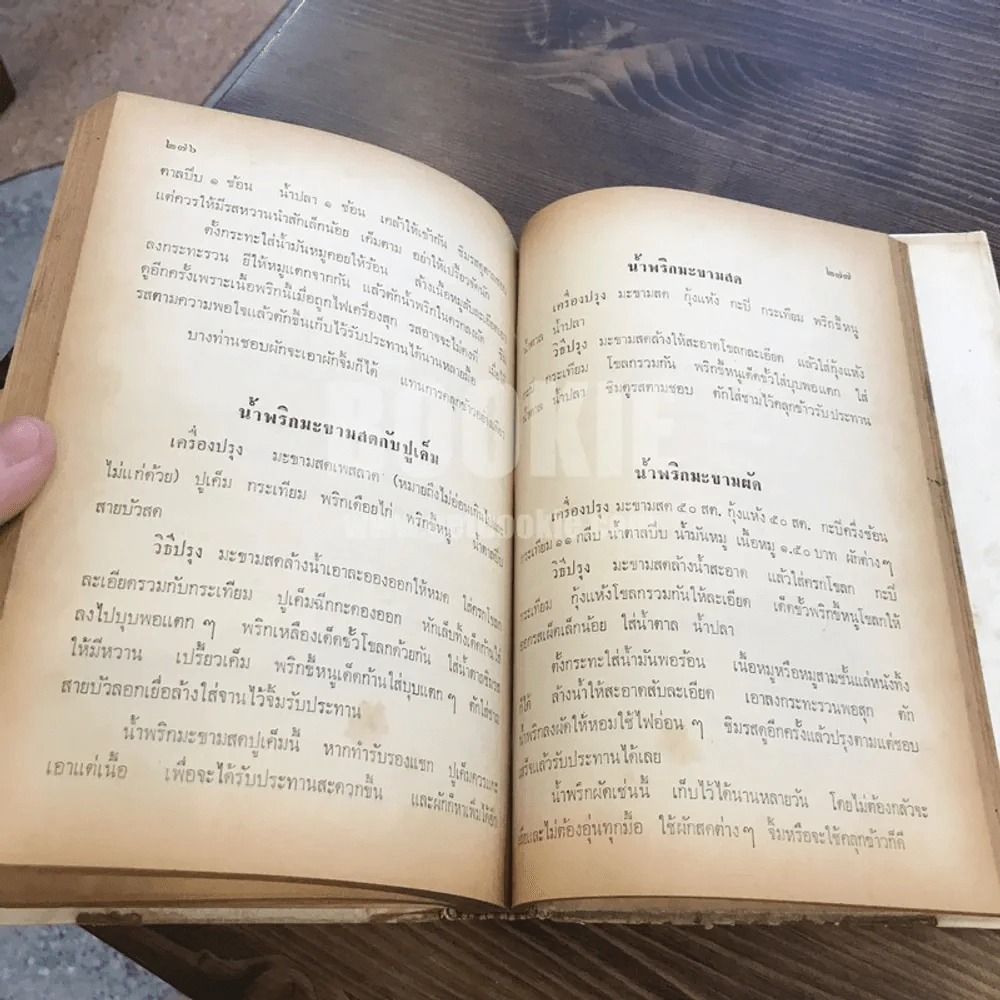 ๒๗๖
ตาลปีบ ๑ ช้อน น้ำปลา ๑ ช้อน เคล้าให้เข้ากัน ชิมรสดูตามชอบ
แต่ควรให้มีรสหวานนำสักเล็กน้อย เค็มตาม อย่าให้เปรี้ยวจัดนัก
ตั้งกระทะใส่น้ำมันหมูคอยให้ร้อน ล้างเนื้อหมูสับละเอียด
ลงกระทะรวน ยีให้หมูแตกจากกัน แล้วตักน้ำพริกในครกลงผัด ชิม
ดูอีกครั้งเพราะเนื้อพริกนี้เมื่อถูกไฟเครื่องสุก รสอาจจะไม่คงที่ เมื่อได้
รสตามความพอใจแล้วตักขึ้นเก็บไว้รับประทานได้นานหลายมื้อ
บางท่านชอบผักจะเอาผักจิ้มก็ได้ แทนการคลุกข้าวอย่างเดียว
น้ำพริกมะขามสดกับปูเค็ม
เครื่องปรุง มะขามสดเพสลาด (หมายถึงไม่อ่อนเกินไปและ
ไม่แก่ด้วย) ปูเค็ม กระเทียม พริกเดือยไก่ พริกขี้หนู น้ำตาลปีบ
สายบัวสด
วิธีปรุง มะขามสดล้างน้ำเอาละอองออกให้หมด ใส่ครกโขลก
ละเอียดรวมกับกระเทียม ปูเค็มฉีกกะดองออก หักเล็บทิ้งเด็ดก้านใส่
ลงไปบุบพอแตก ๆ พริกเหลืองเด็ดขั้วโขลกด้วยกัน ใส่น้ำตาลชิมรส
ให้มีหวาน เปรี้ยวเค็ม พริกขี้หนูเด็ดก้านใส่บุบแตก ๆ ตักใส่ชาม
สายบัวลอกเยื่อล้างใส่จานไว้จิ้มรับประทาน
น้ำพริกมะขามสดปูเค็มนี้ หากทำรับรองแขก ปูเค็มควรแกะ
เอาแต่เนื้อ เพื่อจะได้รับประทานสะดวกขึ้น และผักก็หาเพิ่มได้อีก
น้ำพริกมะขามสด
๒๗๗
เครื่องปรุง มะขามสด กุ้งแห้ง กะปิ กระเทียม พริกขี้หนู
น้ำตาล น้ำปลา
วิธีปรุง มะขามสดล้างให้สะอาดโขลกละเอียด แล้วใส่กุ้งแห้ง
กะปิ กระเทียม โขลกรวมกัน พริกขี้หนูเด็ดขั้วใส่บุบพอแตก ใส่
น้ำตาล น้ำปลา ชิมดูรสตามชอบ ตักใส่ชามไว้คลุกข้าวรับประทาน
น้ำพริกมะขามผัด
เครื่องปรุง มะขามสด ๕๐ สต. กุ้งแห้ง ๕๐ สต. กะปิครึ่งช้อน
กระเทียม ๑๑ กลีบ น้ำตาลปีบ น้ำมันหมู เนื้อหมู ๑.๕๐ บาท ผักต่าง ๆ
วิธีปรุง มะขามสดล้างน้ำสะอาด แล้วใส่ครกโขลก กะปิ
กระเทียม กุ้งแห้งโขลกรวมกันให้ละเอียด เด็ดขั้วพริกขี้หนูโขลกให้
ออกรสเผ็ดเล็กน้อย ใส่น้ำตาล น้ำปลา
ตั้งกระทะใส่น้ำมันพอร้อน เนื้อหมูหรือหมูสามชั้นแล่หนังทิ้ง
ก็ได้ ล้างน้ำให้สะอาดสับละเอียด เอาลงกระทะรวนพอสุก ตัก
น้ำพริกลงผัดให้หอมใช้ไฟอ่อน ๆ ชิมรสดูอีกครั้งแล้วปรุงตามแต่ชอบ
เสร็จแล้วรับประทานได้เลย
น้ำพริกผัดเช่นนี้ เก็บไว้ได้นานหลายวัน โดยไม่ต้องกลัวจะ
และไม่ต้องอุ่นทุกมื้อ ใช้ผักสดต่าง ๆ จิ้มหรือจะใช้คลุกข้าวก็ดี
BOOKIE